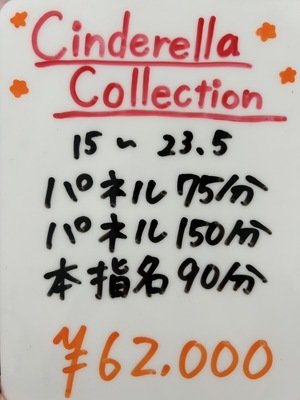 Cinderella
Collection
15～23.5
パネル 75分
パネル 150分
本指名 90分
¥62.000